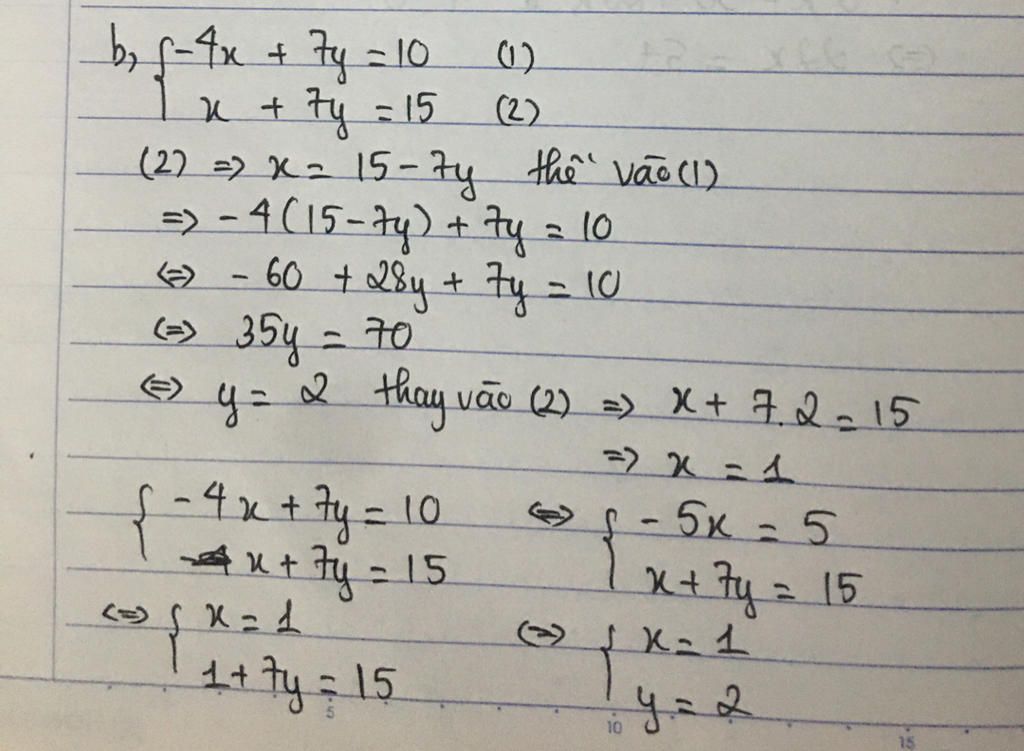 b, { -4x + 7y = 10 (1)
x + 7y = 15 (2)
(2) => x = 15 - 7y thế vào (1)
=> - 4 (15 - 7y) + 7y = 10
<=> - 60 + 28y + 7y = 10
<=> 35y = 70
<=> y = 2 thay vào (2) => x + 7.2 = 15
=> x = 1
{ - 4x + 7y = 10 <=> { - 5x = 5
x + 7y = 15 x + 7y = 15
<=> { x = 1 <=> { x = 1
1 + 7y = 15 y = 2
5 10 15